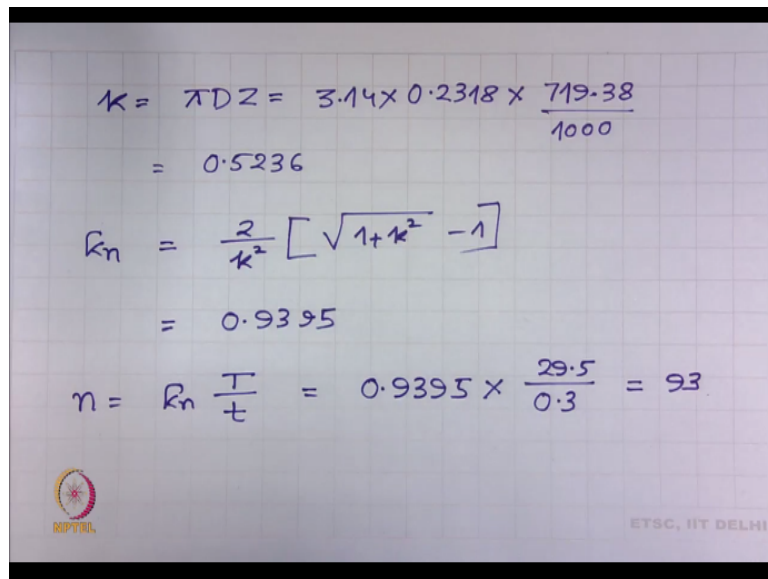 K = πDZ = 3.14 × 0.2318 × 719.38/1000
= 0.5236
kn = 2/K² [√(1+K²) - 1]
= 0.9395
n = kn T/t = 0.9395 × 29.5/0.3 = 93
NPTEL
ETSC, IIT DELHI